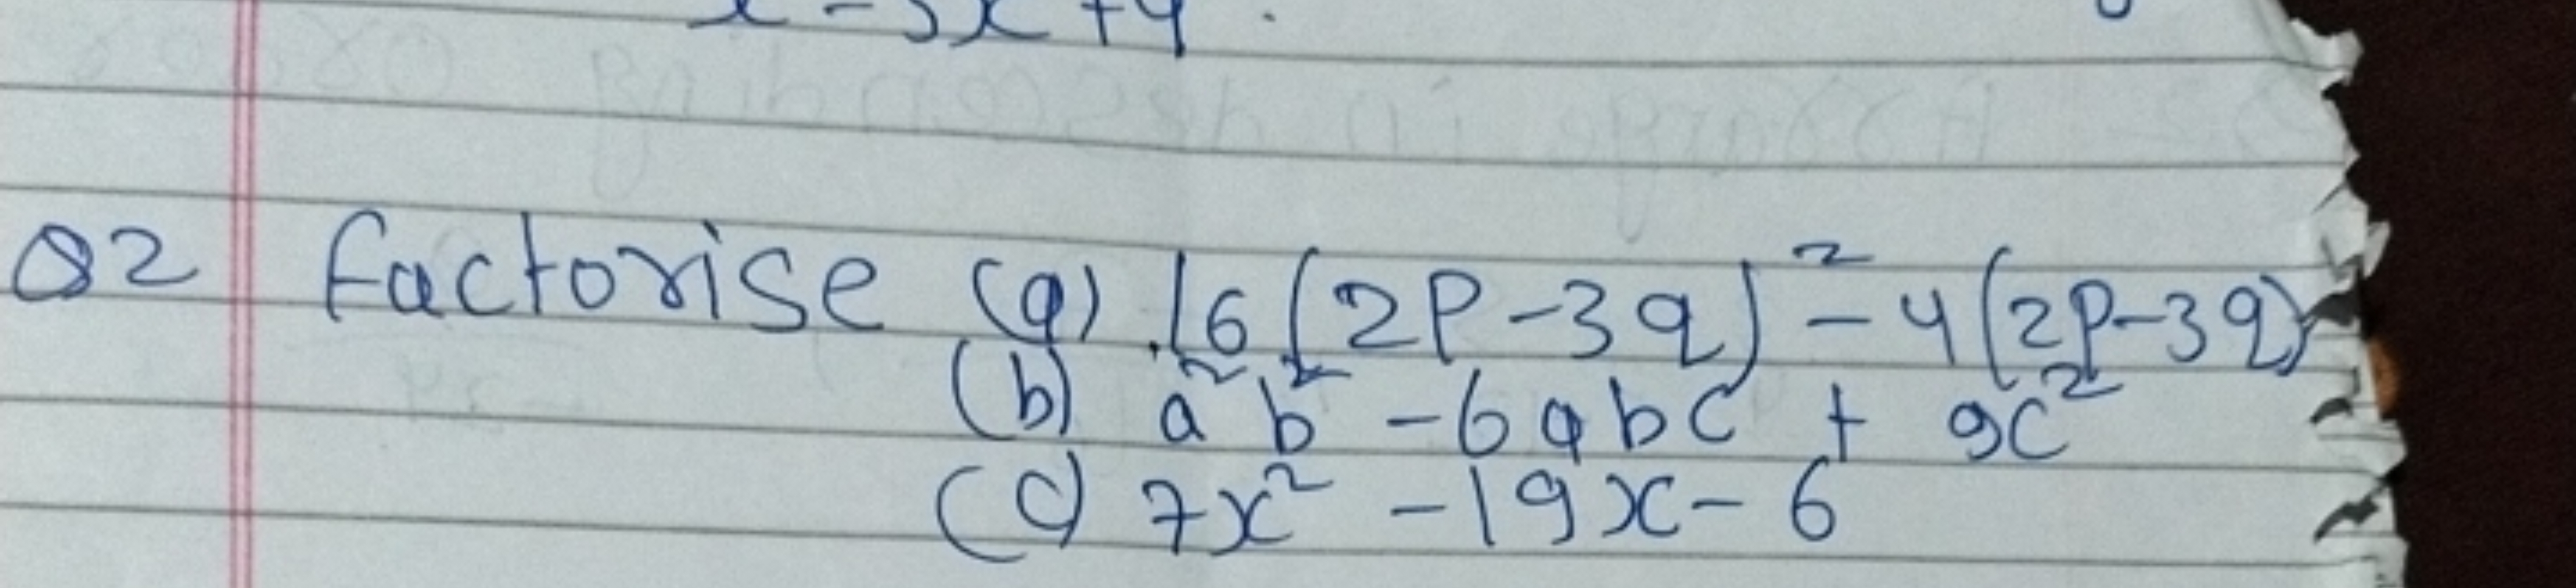 Q2 factorise (a) 16(2p-3q)² - 4(2p-3q)
(b) a²b² - 6abc + 9c²
(c) 7x² - 19x - 6